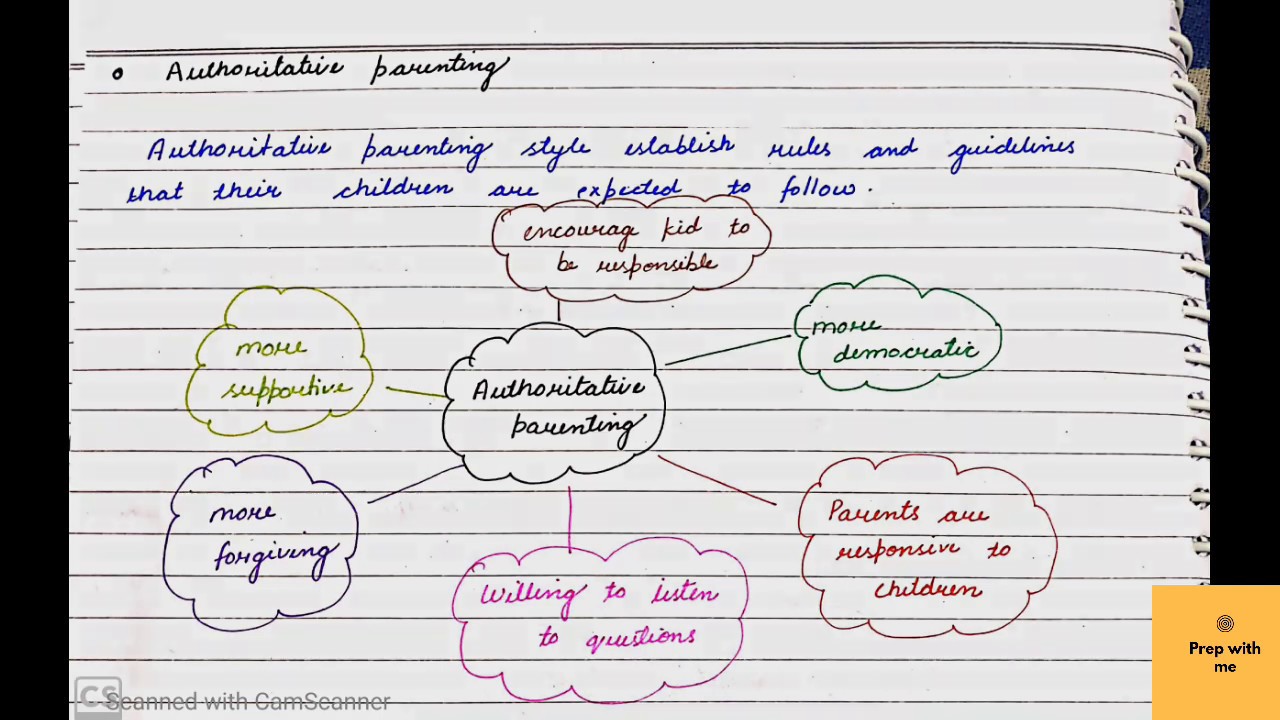 Authoritative parenting
Authoritative parenting style establish rules and guidelines
that their children are expected to follow.
encourage kid to
be responsible
more
democratic
more
supportive
Authoritative
parenting
more
forgiving
Parents are
responsive to
children
Willing to listen
to questions
CS
Scanned with CamScanner
Prep with
me